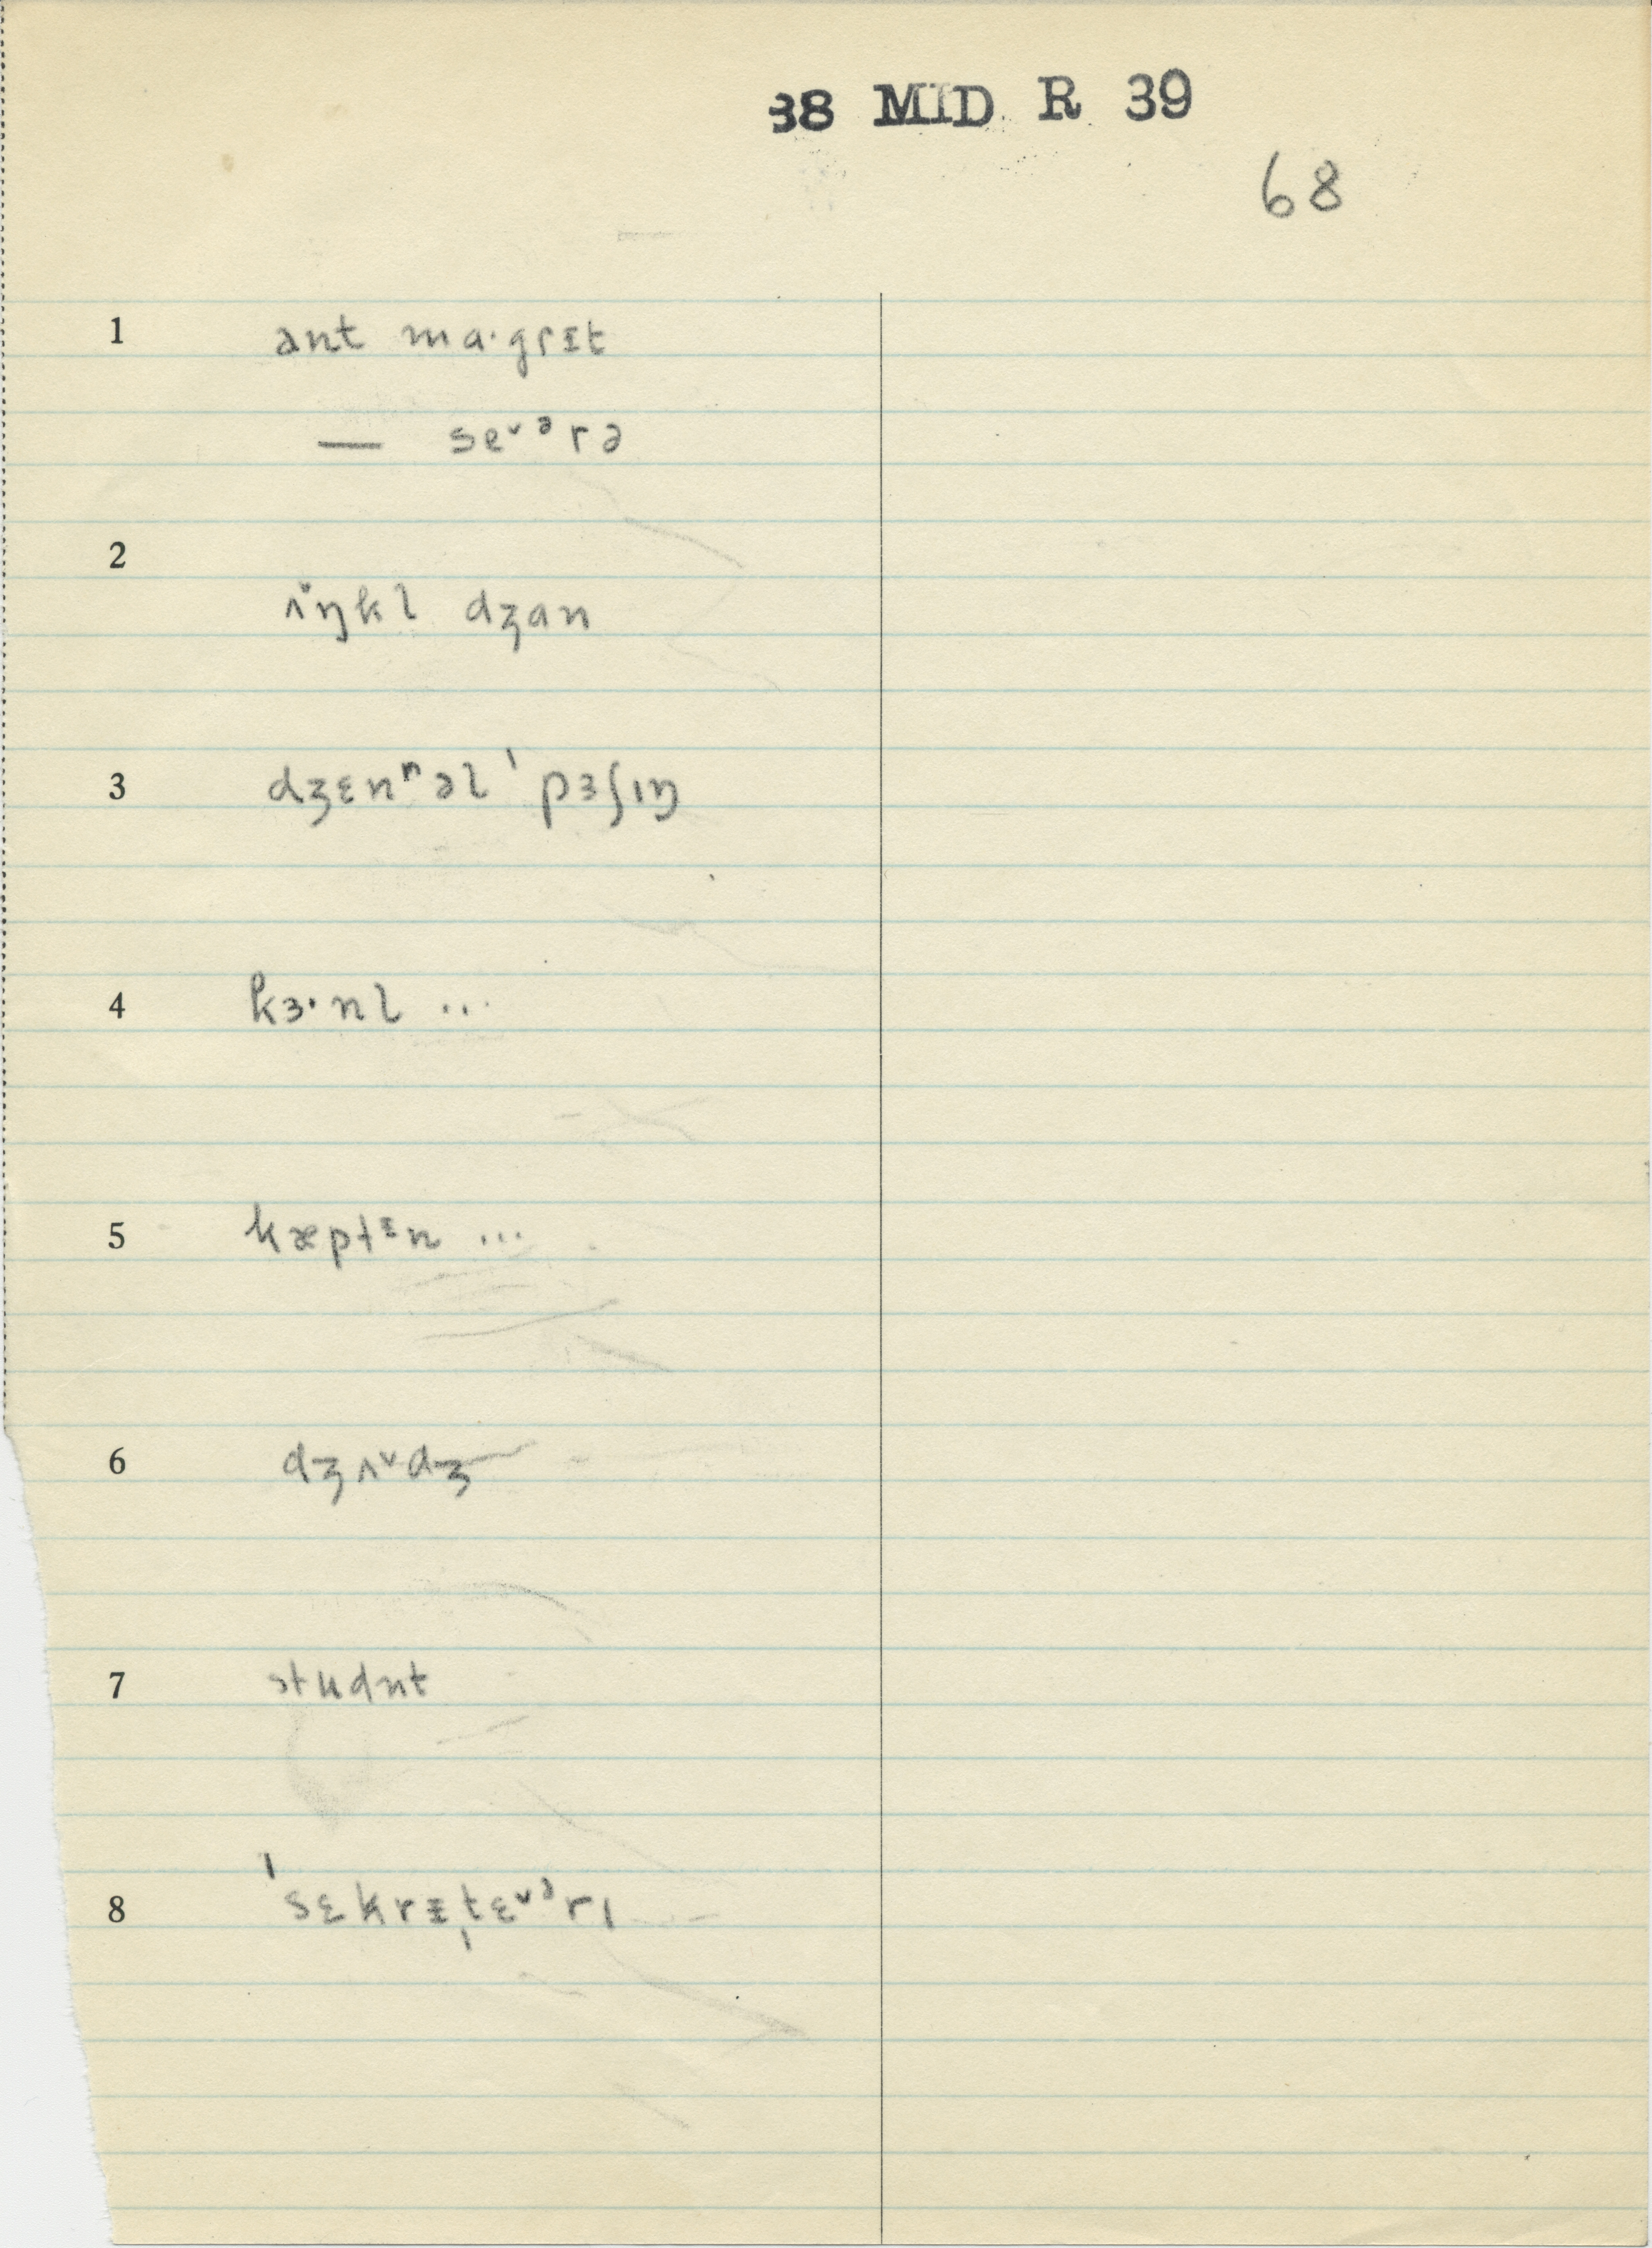 38 MID R 39
68
1 ant ma·grɪt
— se˅ᵊrə
2
ʌ̈ŋkl dʒan
3 dʒɛnʳəl ˈpɜʃɪŋ
4 kɜ·nl ...
5 kæptᵻn ...
6 dʒʌ˅dʒ
7 studnt
8 ˈsɛkrᵻˌtɛ˅ᵊrɪ